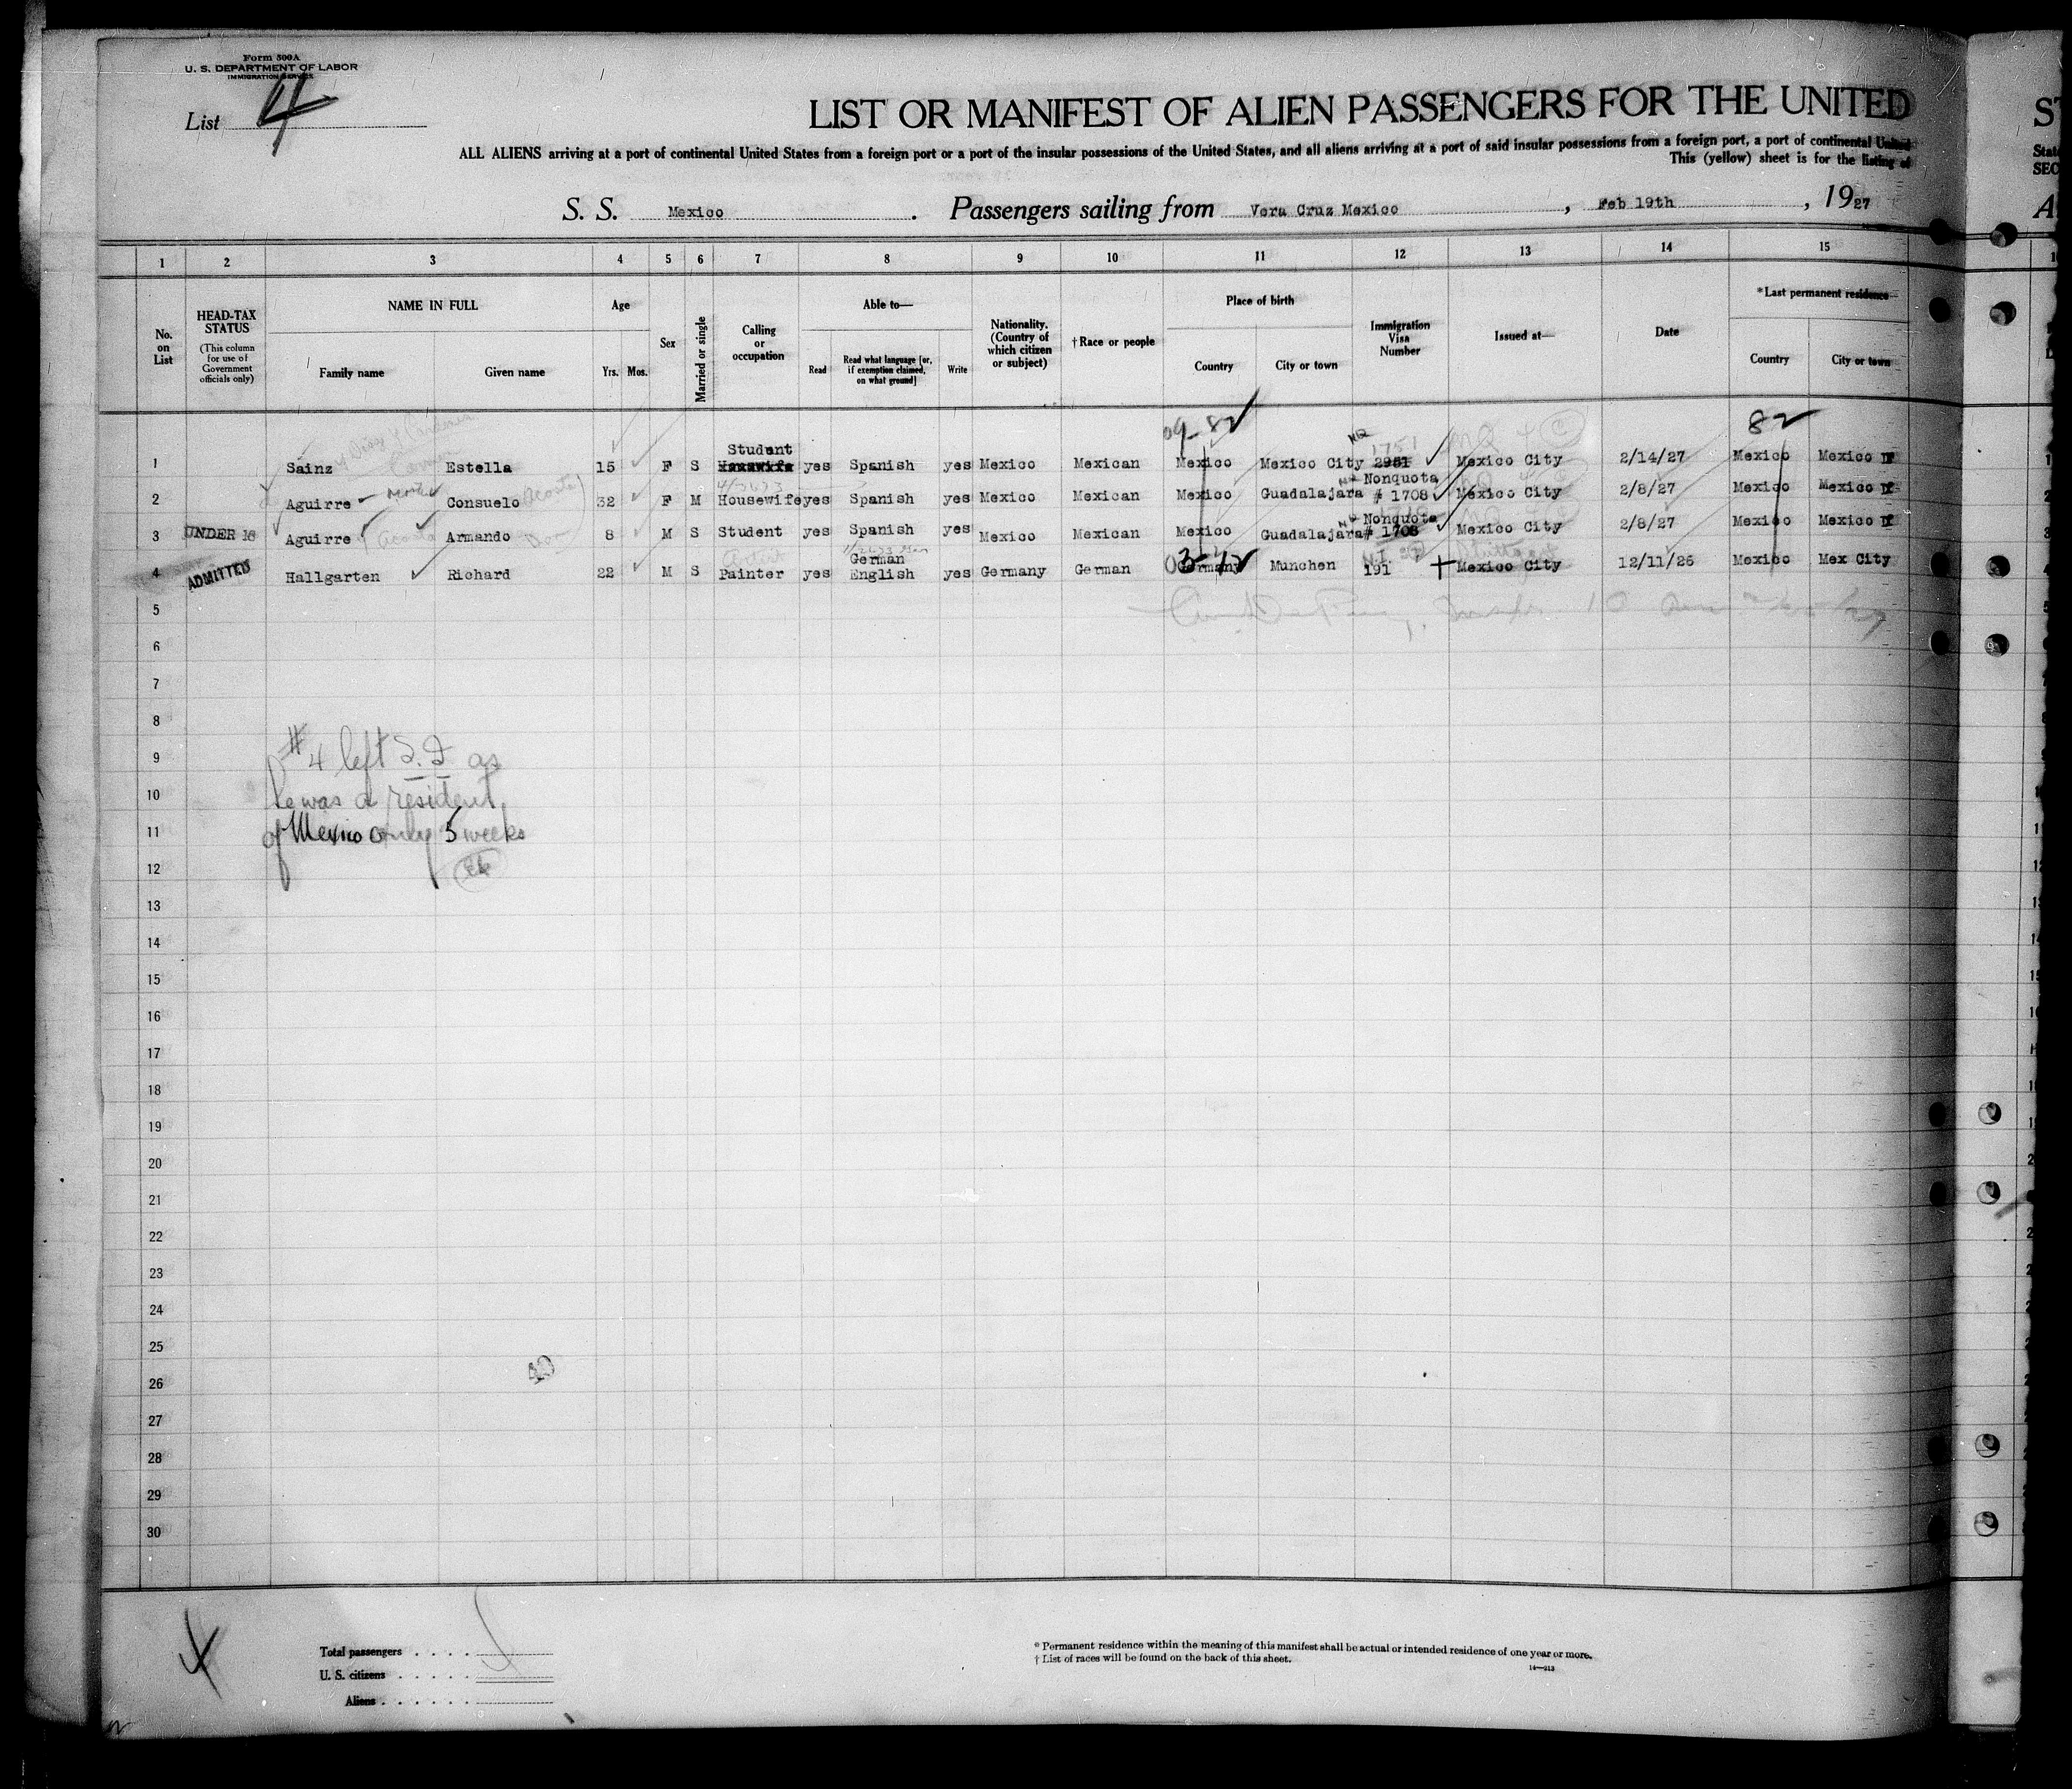 Form 500A
U. S. DEPARTMENT OF LABOR
IMMIGRATION SERVICE
List 4
LIST OR MANIFEST OF ALIEN PASSENGERS FOR THE UNITED
ALL ALIENS arriving at a port of continental United States from a foreign port or a port of the insular possessions of the United States, and all aliens arriving at a port of said insular possessions from a foreign port, a port of continental United
This (yellow) sheet is for the listing of
S. S. Mexico . Passengers sailing from Vera Cruz Mexico , Feb 19th , 1927
ST
State
SEC
A
1 2 3 4 5 6 7 8 9 10 11 12 13 14 15
No. on List
HEAD-TAX STATUS
(This column for use of Government officials only)
NAME IN FULL
Family name Given name
Age
Yrs. Mos.
Sex
Married or single
Calling or occupation
Able to—
Read
Read what language [or, if exemption claimed, on what ground]
Write
Nationality. (Country of which citizen or subject)
† Race or people
Place of birth
Country City or town
Immigration Visa Number
Issued at—
Date
*Last permanent residence
Country City or town
82
1 Sainz Estella 15 F S Student yes Spanish yes Mexico Mexican Mexico Mexico City 2951 Mexico City 2/14/27 Mexico Mexico DF
2 Aguirre Consuelo 32 F M Housewife yes Spanish yes Mexico Mexican Mexico Guadalajara Nonquota # 1708 Mexico City 2/8/27 Mexico Mexico Df
3 UNDER 16 Aguirre Armando 8 M S Student yes Spanish yes Mexico Mexican Mexico Guadalajara Nonquota # 1708 Mexico City 2/8/27 Mexico Mexico Df
4 ADMITTED Hallgarten Richard 22 M S Painter yes German English yes Germany German Germany Munchen 191 Mexico City 12/11/26 Mexico Mex City
5
6
7
8
9
10
11
12
13
14
15
16
17
18
19
20
21
22
23
24
25
26
27
28
29
30
#4 left S.I as
he was a resident
of Mexico only 5 weeks
4
Total passengers
U. S. citizens
Aliens
* Permanent residence within the meaning of this manifest shall be actual or intended residence of one year or more.
† List of races will be found on the back of this sheet.
14—213